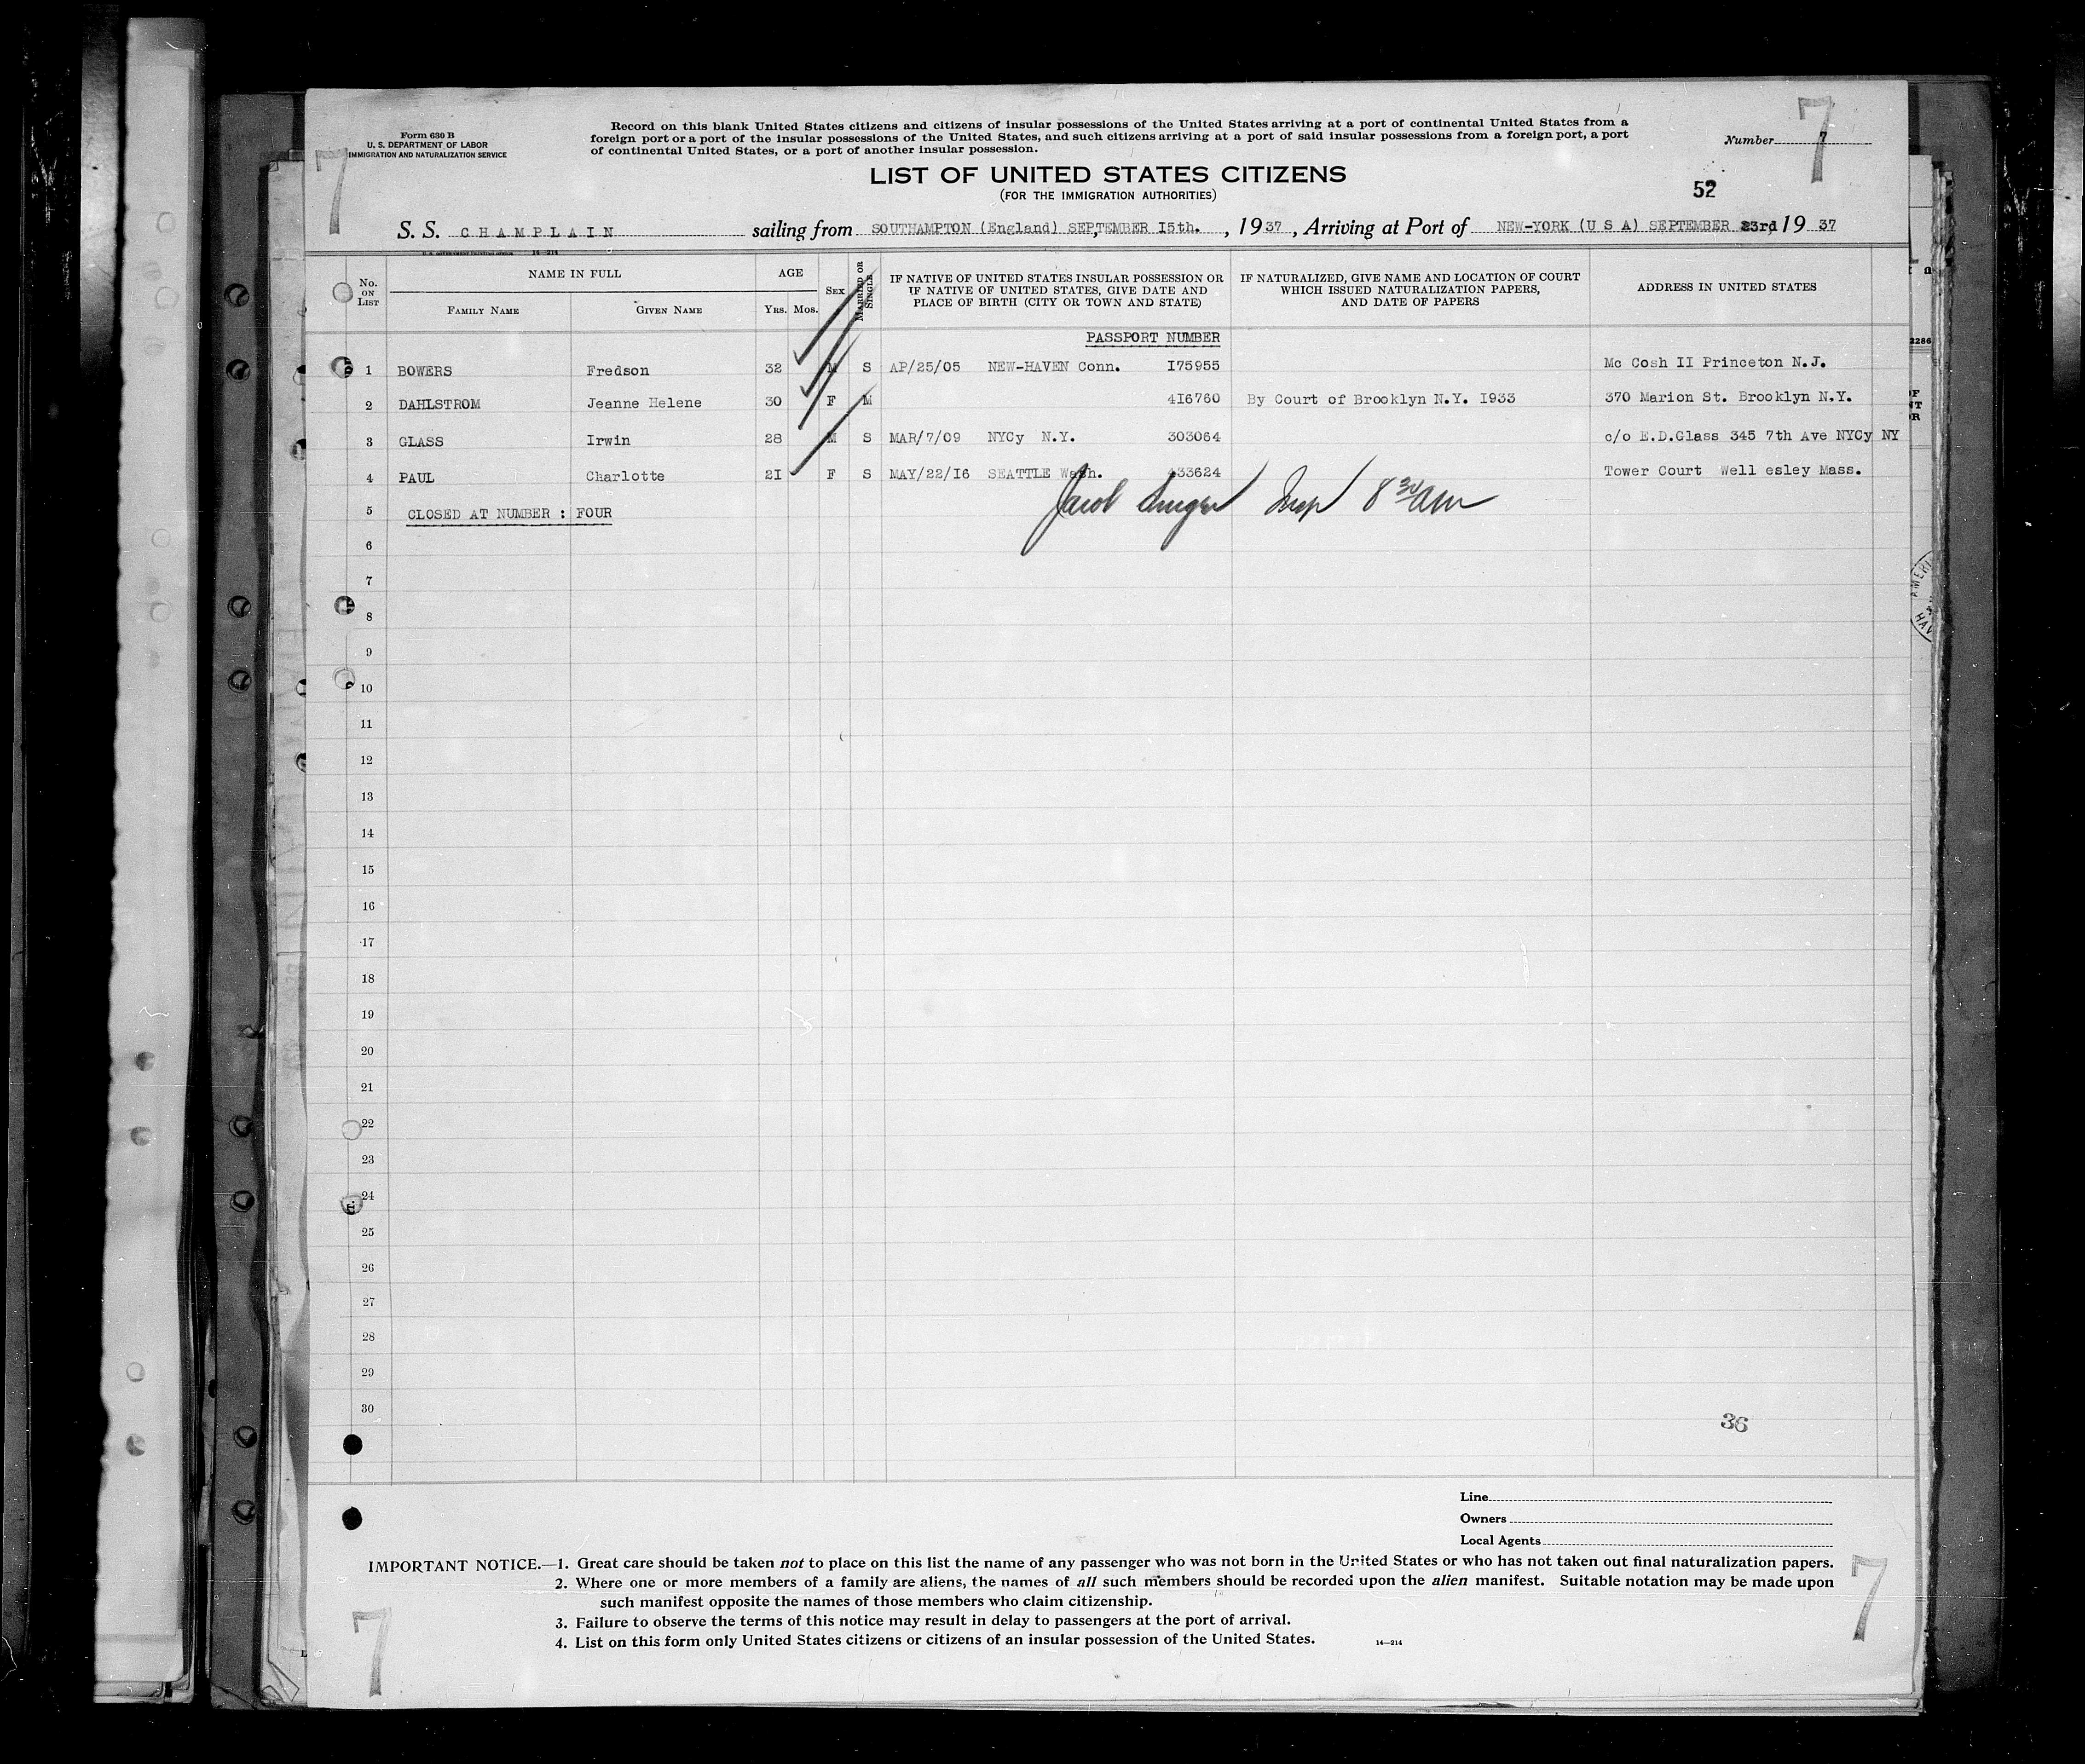 Form 630 B
U. S. DEPARTMENT OF LABOR
IMMIGRATION AND NATURALIZATION SERVICE
7
Record on this blank United States citizens and citizens of insular possessions of the United States arriving at a port of continental United States from a
foreign port or a port of the insular possessions of the United States, and such citizens arriving at a port of said insular possessions from a foreign port, a port
of continental United States, or a port of another insular possession.
Number 7
7
LIST OF UNITED STATES CITIZENS
(FOR THE IMMIGRATION AUTHORITIES)
52
S. S. CHAMPLAIN sailing from SOUTHAMPTON (England) SEPTEMBER I5th. , 1937 , Arriving at Port of NEW-YORK (U S A) SEPTEMBER 23rd 19 37
U.S. GOVERNMENT PRINTING OFFICE 14—214
No. ON LIST NAME IN FULL AGE SEX MARRIED OR SINGLE IF NATIVE OF UNITED STATES INSULAR POSSESSION OR IF NATIVE OF UNITED STATES, GIVE DATE AND PLACE OF BIRTH (CITY OR TOWN AND STATE) IF NATURALIZED, GIVE NAME AND LOCATION OF COURT WHICH ISSUED NATURALIZATION PAPERS, AND DATE OF PAPERS ADDRESS IN UNITED STATES
FAMILY NAME GIVEN NAME YRS. MOS.
PASSPORT NUMBER
1 BOWERS Fredson 32 M S AP/25/05 NEW-HAVEN Conn. I75955 Mc Cosh II Princeton N.J.
2 DAHLSTROM Jeanne Helene 30 F M 4I6760 By Court of Brooklyn N.Y. I933 370 Marion St. Brooklyn N.Y.
3 GLASS Irwin 28 M S MAR/7/09 NYCy N.Y. 303064 c/o E.D.Glass 345 7th Ave NYCy NY
4 PAUL Charlotte 2I F S MAY/22/I6 SEATTLE Wash. 433624 Tower Court Well esley Mass.
5 CLOSED AT NUMBER : FOUR
Jacob Insp 8 30 am
6
7
8
9
10
11
12
13
14
15
16
17
18
19
20
21
22
23
24
25
26
27
28
29
30
36
Line
Owners
Local Agents
IMPORTANT NOTICE.—1. Great care should be taken not to place on this list the name of any passenger who was not born in the United States or who has not taken out final naturalization papers.
2. Where one or more members of a family are aliens, the names of all such members should be recorded upon the alien manifest. Suitable notation may be made upon
such manifest opposite the names of those members who claim citizenship.
3. Failure to observe the terms of this notice may result in delay to passengers at the port of arrival.
4. List on this form only United States citizens or citizens of an insular possession of the United States. 14—214
7
7